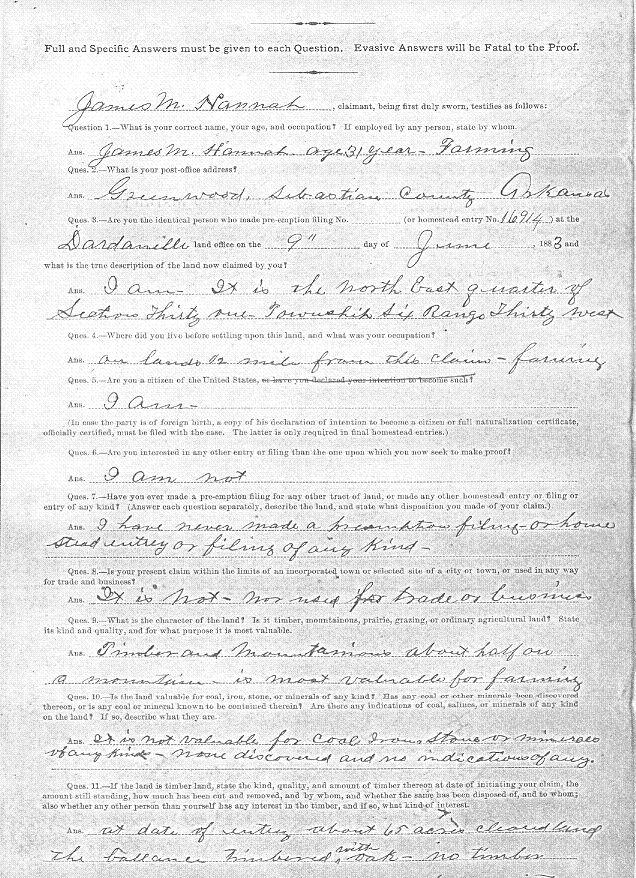 Full and Specific Answers must be given to each Question. Evasive Answers will be Fatal to the Proof.
James M. Hannah, claimant, being first duly sworn, testifies as follows:
Question 1.—What is your correct name, your age, and occupation? If employed by any person, state by whom.
Ans. James M. Hannah age 31 year - Farming
Ques. 2.—What is your post-office address?
Ans. Greenwood, Sebastian County Arkansas
Ques. 3.—Are you the identical person who made pre-emption filing No. (or homestead entry No. 16914) at the
Dardanelle land office on the 9" day of June, 1883 and
what is the true description of the land now claimed by you?
Ans. I am - It is the North East quarter of
Section Thirty one - Township Six Range Thirty west
Ques. 4.—Where did you live before settling upon this land, and what was your occupation?
Ans. on lands 1/2 mile from this claim - farming
Ques. 5.—Are you a citizen of the United States, or have you declared your intention to become such?
Ans. I Am -
(In case the party is of foreign birth, a copy of his declaration of intention to become a citizen or full naturalization certificate,
officially certified, must be filed with the case. The latter is only required in final homestead entries.)
Ques. 6.—Are you interested in any other entry or filing than the one upon which you now seek to make proof?
Ans. I am not
Ques. 7.—Have you ever made a pre-emption filing for any other tract of land, or made any other homestead entry or filing or
entry of any kind? (Answer each question separately, describe the land, and state what disposition you made of your claim.)
Ans. I have never made a preemption filing - or home
stead entry or filing of any kind -
Ques. 8.—Is your present claim within the limits of an incorporated town or selected site of a city or town, or used in any way
for trade and business?
Ans. It is not - nor used for trade or business
Ques. 9.—What is the character of the land? Is it timber, mountainous, prairie, grazing, or ordinary agricultural land? State
its kind and quality, and for what purpose it is most valuable.
Ans. Timber and Mountanious about half on
a mountain - is most valuable for farming
Ques. 10.—Is the land valuable for coal, iron, stone, or minerals of any kind? Has any coal or other minerals been discovered
thereon, or is any coal or mineral known to be contained therein? Are there any indications of coal, salines, or minerals of any kind
on the land? If so, describe what they are.
Ans. It is not valuable for Coal Iron Stone or minerals
of any kind - none discovered and no indications of any.
Ques. 11.—If the land is timber land, state the kind, quality, and amount of timber thereon at date of initiating your claim, the
amount still standing, how much has been cut and removed, and by whom, and whether the same has been disposed of, and to whom;
also whether any other person than yourself has any interest in the timber, and if so, what kind of interest.
Ans. at date of entry about 65 acres cleared land
the ballance timbered, with oak - no timber